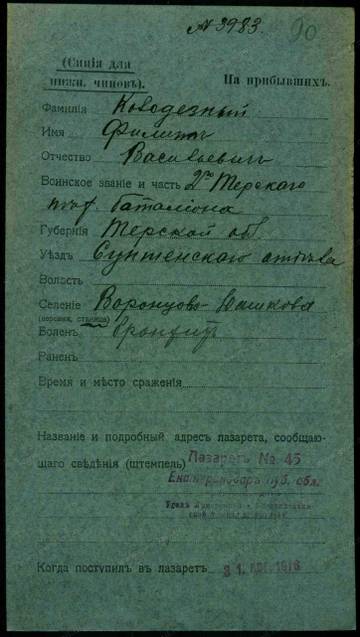 № 3983. 90
(Синія для
нижн. чиновъ). На прибывшихъ.
Фамилія Колодезный
Имя Филиппъ
Отчество Васильевичъ
Воинское званіе и часть 2го Терскаго
баталіона
Губернія Терской об.
Уѣздъ Сунженскаго отдѣла
Волость
Селеніе Воронцово-Дашкова
(деревня, станица)
Боленъ бронхитъ
Раненъ
Время и мѣсто сраженія
Названіе и подробный адресъ лазарета, сообщаю-
щаго свѣдѣнія (штемпель) Лазаретъ № 45
Екатеринодаръ Куб. обл.
Когда поступилъ въ лазаретъ 31. 1916